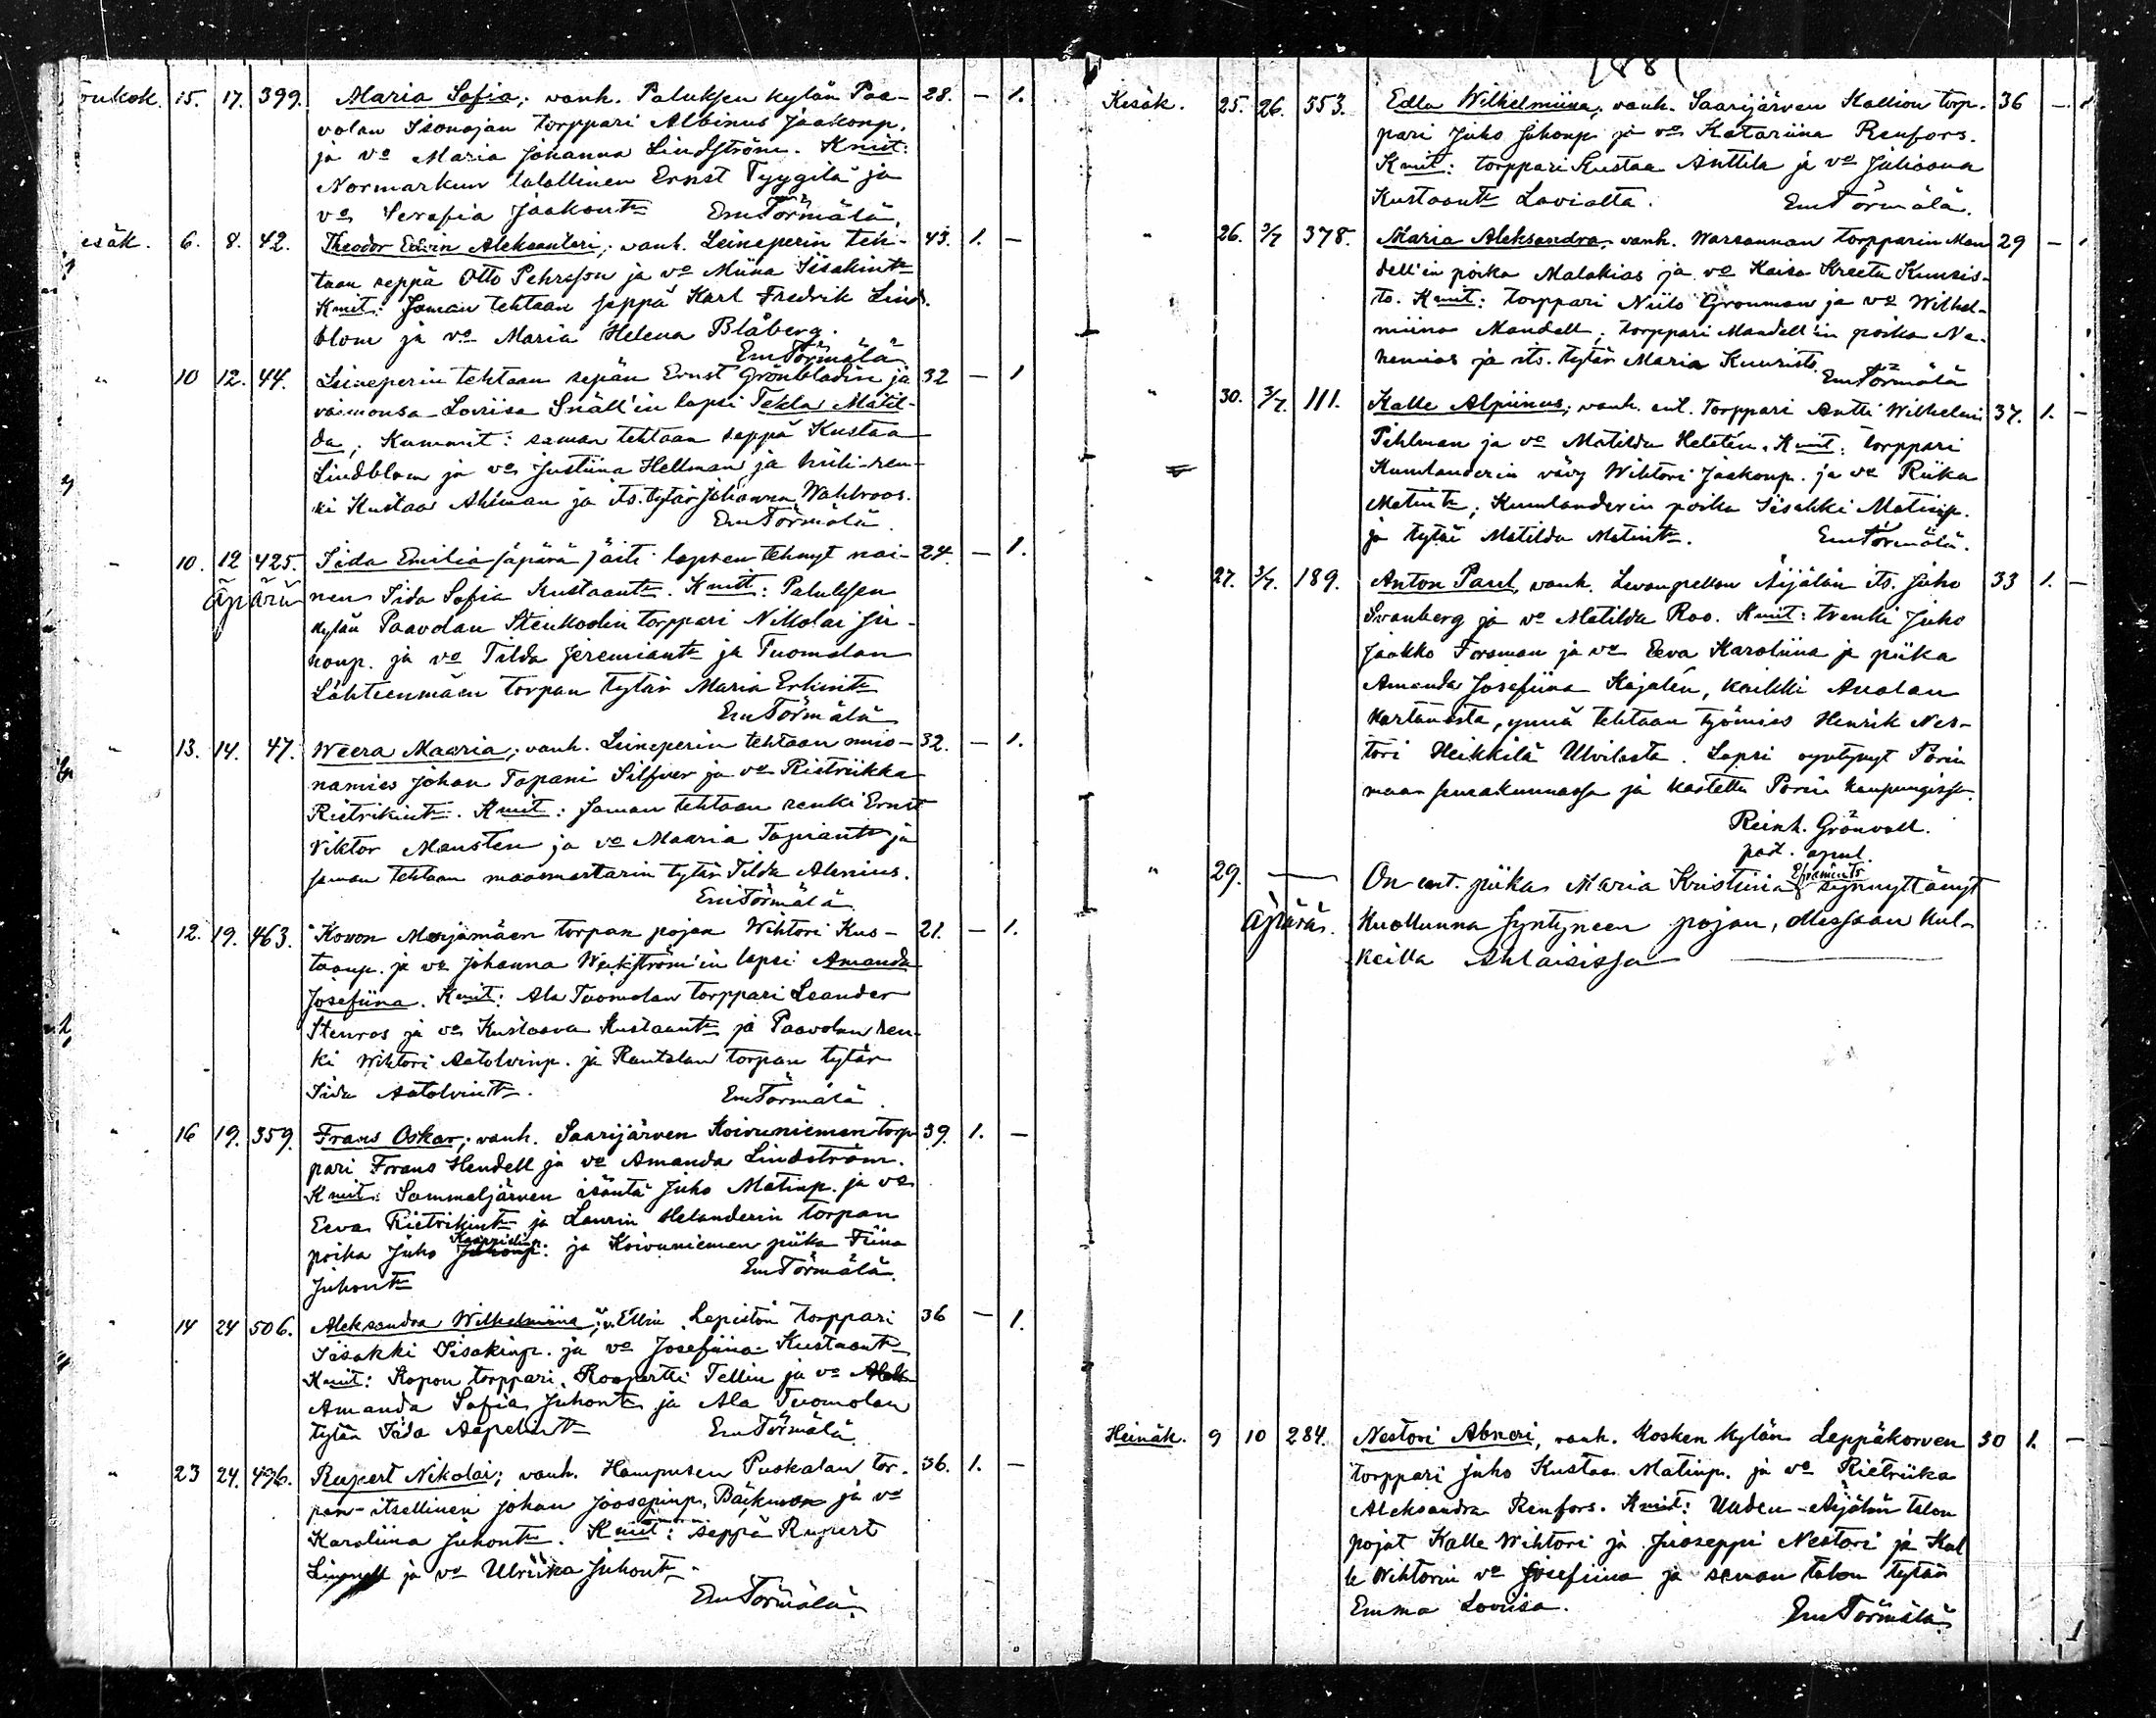 1881
Toukok. 15. 17. 399. Maria Sofia; vanh. Paluksen kylän Paa- 28. — 1.
volan Isonojan torppari Albinus Jaakonp.
ja vo Maria Johanna Lindström. Kmit:
Normarkun talollinen Ernst Tyygilä ja
vo Serafia Jaakontr EmTörmälä.
Kesäk. 6. 8. 42. Theodor Edvin Aleksanteri; vanh. Leineperin teh- 43. 1. —
taan seppä Otto Pehrsson ja vo Miina Iisakintr
Kmit: Saman tehtaan seppä Karl Fredrik Lind-
blom ja vo Maria Helena Blåberg.
EmTörmälä
" 10 12. 44. Leineperin tehtaan sepän Ernst Grönbladin ja 32 — 1
vaimonsa Loviisa Snäll'in lapsi Tekla Matil-
da; Kummit: saman tehtaan seppä Kustaa
Lindblom ja vo Justiina Hellman ja hiili-ren-
ki Kustaa Ahlman ja its. tytär Johanna Wahlroos.
EmTörmälä.
" 10. 12 425. Iida Emilia (äpärä) äiti lapsen tehnyt nai- 24. — 1.
äpärä nen Iida Sofia Kustaantr. Kmit: Paluksen
kylän Paavolan Stenkoolin torppari Nikolai Ju-
honp. ja vo Tilda Jeremiantr ja Tuomolan
Lähteenmäen torpan tytär Maria Erkintr
EmTörmälä
" 13. 14. 47. Weera Maaria; vanh. Leineperin tehtaan muo- 32. — 1.
namies Johan Tapani Silfver ja vo Rietriikka
Rietrikintr. Kmit: Saman tehtaan renki Ernst
Viktor Mansten ja vo Maaria Tapiantr ja
saman tehtaan maamestarin tytär Tilda Alenius.
EmTörmälä.
" 12. 19. 463. Kovon Marjamäen torpan pojan Wihtori Kus- 21. — 1.
taanp. ja vo Johanna Weikström'in lapsi Amanda
Josefiina. Kmit: Ala Tuomolan torppari Leander
Stenros ja vo Kustaava Kustaantr ja Paavolan ren-
ki Wihtori Aatolvinp. ja Rantalan torpan tytär
Iida Aatolvintr. EmTörmälä.
" 16 19. 359. Frans Oskar; vanh. Saarijärven Koivuniemen torp- 39. 1. —
pari Frans Hendell ja vo Amanda Lindström.
Kmit: Sammaljärven isäntä Juho Matinp. ja vo
Eeva Rietrikintr ja Laurin Helanderin torpan
poika Juho Kaapridinp. ja Koivuniemen piika Fiina
Juhontr EmTörmälä.
" 14 24 506. Aleksandra Wilhelmiina; v. Ellin Lepistön torppari 36 — 1.
Iisakki Iisakinp. ja vo Josefiina Kustaantr
Kmit: Kopon torppari Roopertti Tellin ja vo
Amanda Sofia Juhontr ja Ala Tuomolan
tytär Iida Aapelintr EmTörmälä.
" 23 24. 496. Rupert Nikolai; vanh. Hampusen Puskalan tor- 36. 1. —
pan-itsellinen Johan Joosepinp. Bäckman ja vo
Karoliina Juhontr. Kmit: Seppä Rupert
Linnell ja vo Ulriika Juhontr.
EmTörmälä.
Kesäk. 25. 26. 553. Edla Wilhelmiina; vanh. Saarijärven Kallion torp- 36 — 1
pari Juho Juhonp. ja vo Katariina Renfors.
Kmit: torppari Kustaa Anttila ja vo Juliaana
Kustaantr Lavialta. EmTörmälä.
" 26. 2/7 378. Maria Aleksandra; vanh. Warsannan torpparin Man- 29 — 1
dell'in poika Malakias ja vo Kaisa Kreeta Kuusis-
to. Kmit: torppari Niilo Grönman ja vo Wilhel-
miina Mandell; torppari Mandell'in poika Ne-
hemias ja its. tytär Maria Kuuristo.
EmTörmälä
" 30. 3/7. 111. Kalle Alpiinus; vanh. ent. torppari Antti Wilhelmi 37. 1. —
Pihlman ja vo Matilda Heletén. Kmit: torppari
Kumlanderin vävy Wihtori Jaakonp. ja vo Riika
Matintr; Kumlanderin poika Iisakki Matinp.
ja tytär Matilda Matintr. EmTörmälä.
" 27. 3/7. 189. Anton Paul, vanh. Levanpellon Äijälän its. Juho 33 1. —
Svanberg ja vo Matilda Roo. Kmit: trenki Juho
Jaakko Forsman ja vo Eeva Karoliina ja piika
Amanda Josefiina Kajalén, kaikki Anolan
kartanosta, ynnä tehtaan työmies Henrik Nes-
tori Heikkilä Ulvilasta. Lapsi syntynyt Porin
maa seurakunnassa ja kastettu Porin kaupungissa.
Reinh. Grönvall.
past. apul.
" 29. — On ent. piika Maria Kristiina Efraimintr synnyttänyt
äpärä. kuolleena syntyneen pojan, ollessaan kul-
keilla Ahlaisissa
Heinäk. 9 10 284. Nestori Abneri, vanh. Kosken kylän Leppäkorven 30 1. —
torppari Juho Kustaa Matinp. ja vo Rietriika
Aleksandra Renfors. Kmit: Uuden-Äijälän talon
pojat Kalle Wihtori ja Juoseppi Nestori ja Kal-
le Wihtorin vo Josefiina ja saman talon tytär
Emma Loviisa. EmTörmälä